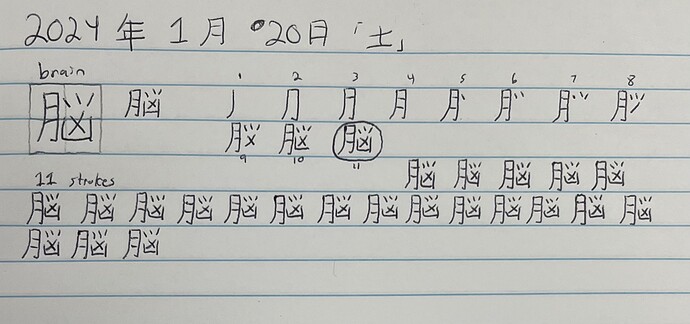 2024年1月20日「土」
brain
1 2 3 4 5 6 7 8
脳 脳 丿 月 月
脳
9 10 11
脳 脳 脳 脳 脳
11 strokes
脳 脳 脳 脳 脳 脳 脳 脳 脳 脳 脳 脳 脳 脳
脳 脳 脳